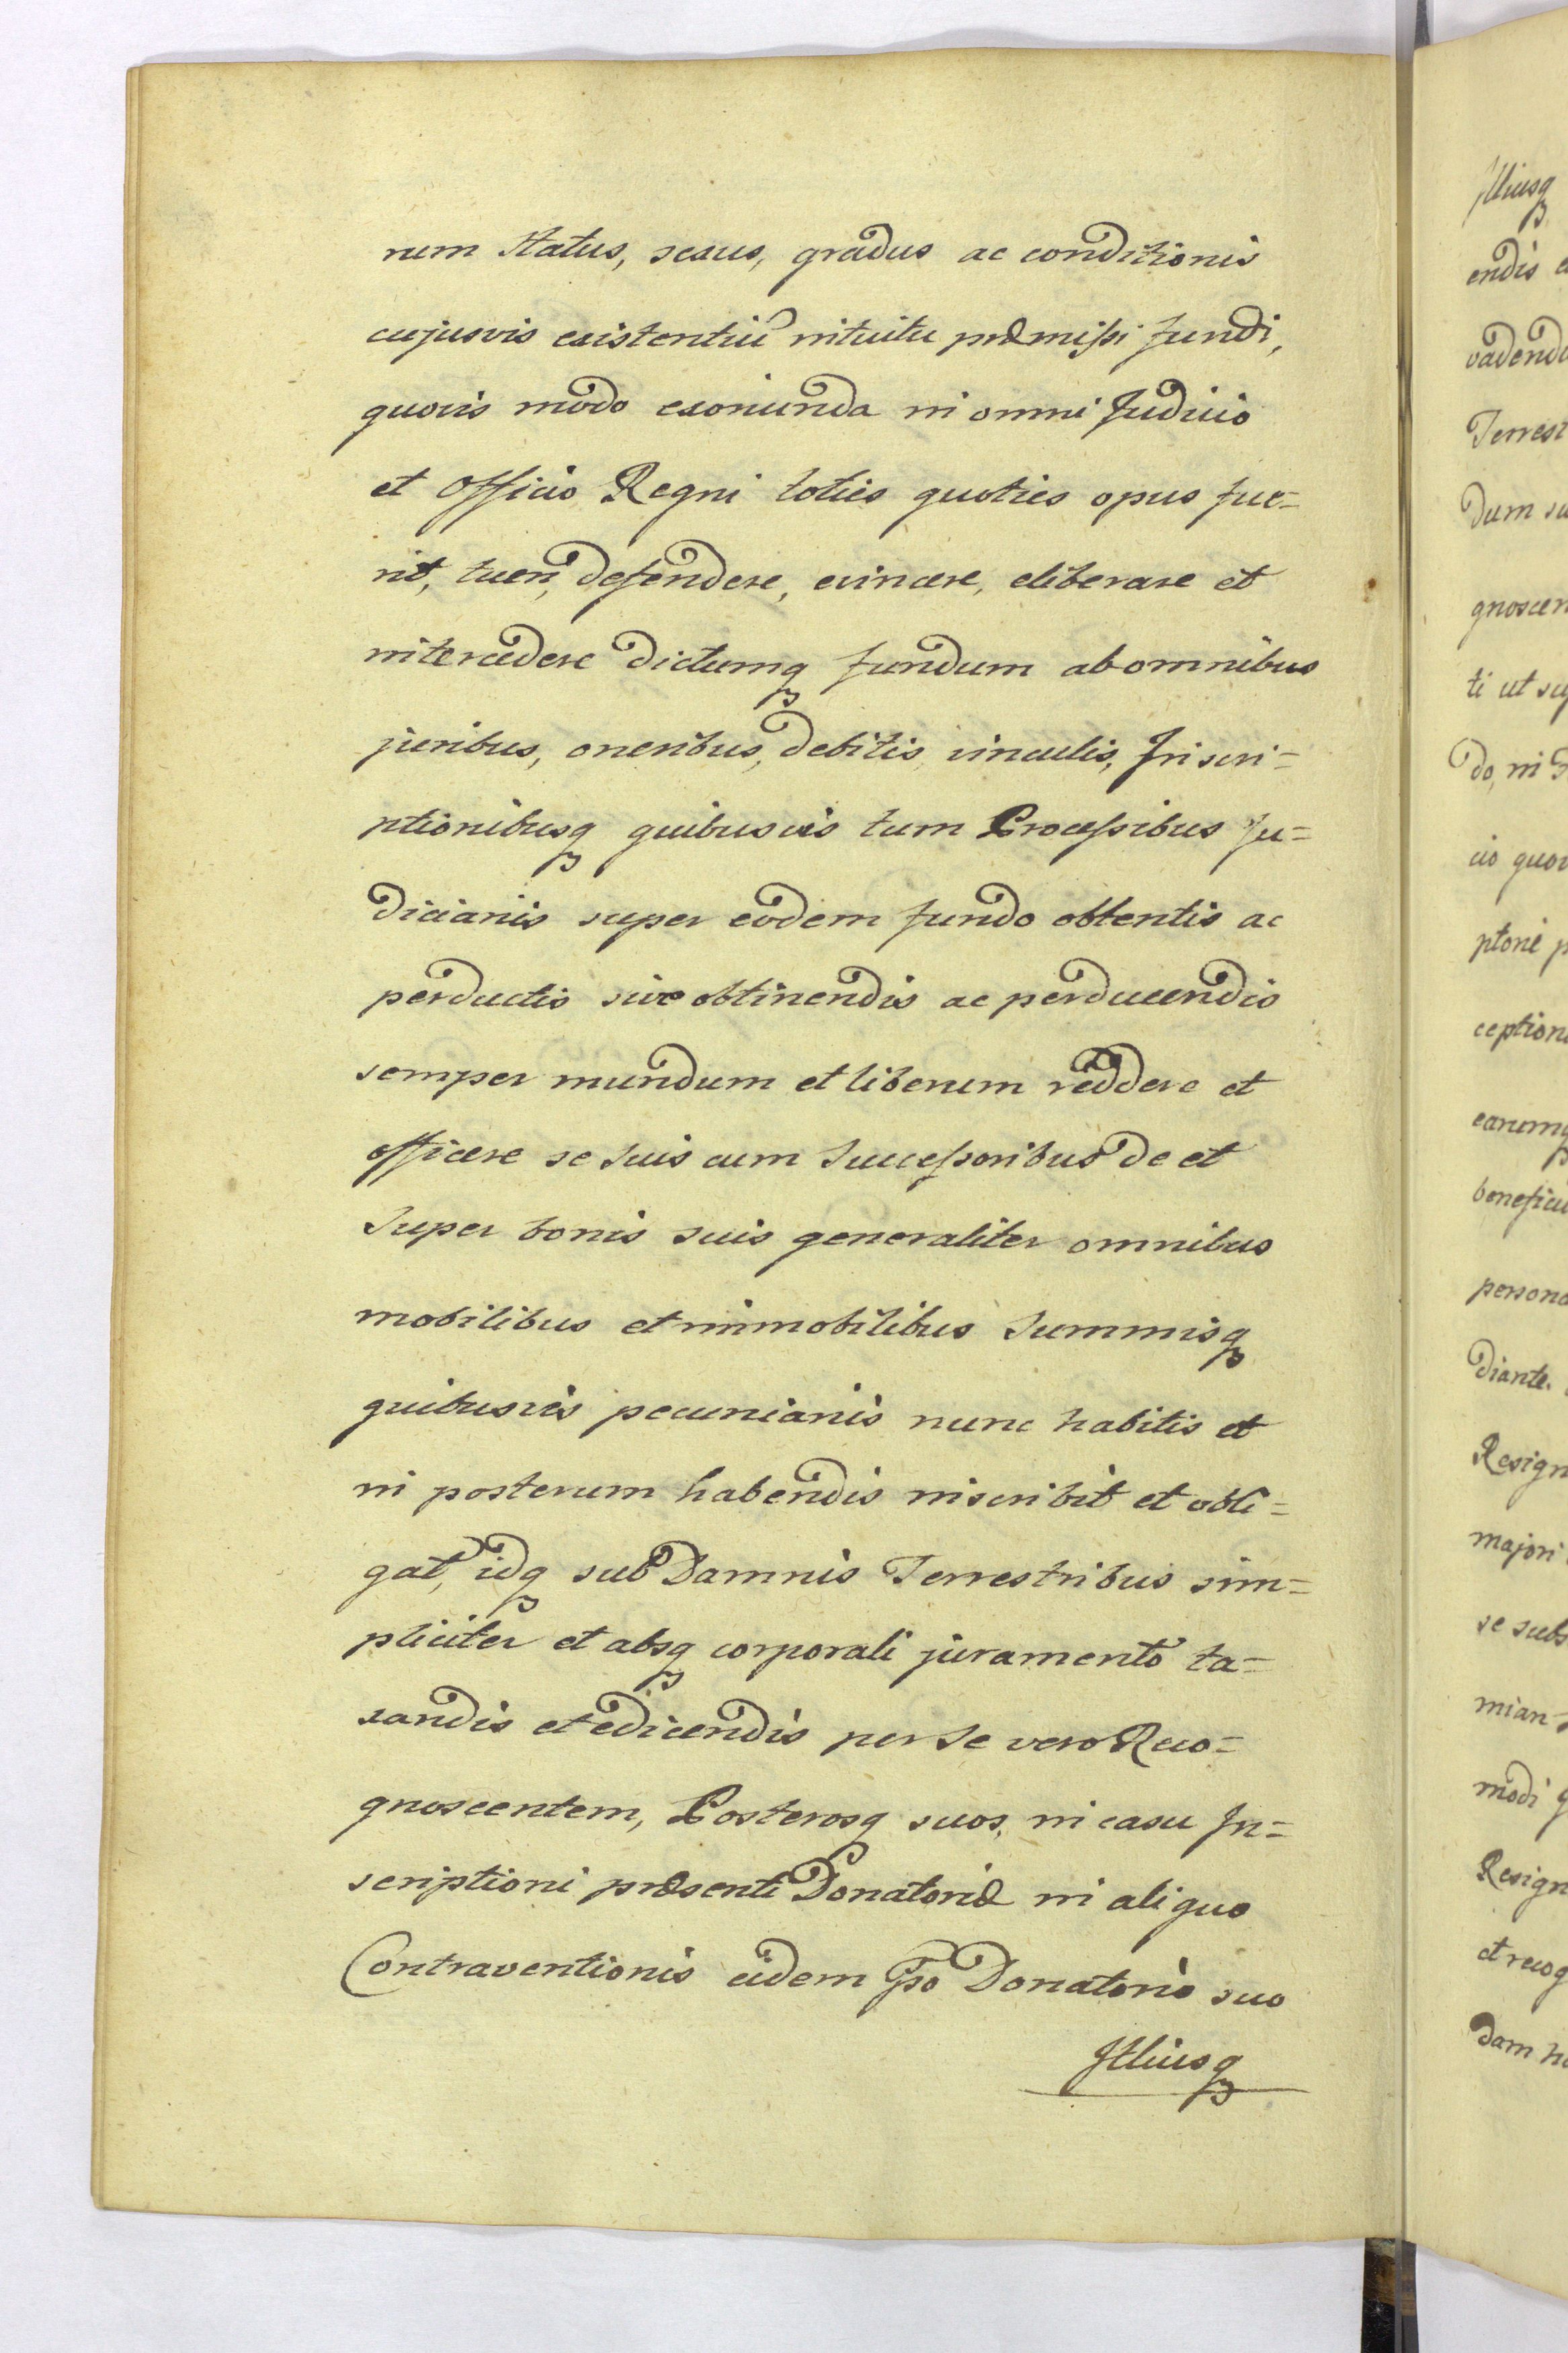 rum Status, sexus, gradus ac conditionis
cujusvis existentiū intuitu præmissi fundi,
quovis modo exoriunda in omni Judicio
et Officio Regni toties quoties opus fue=
rit, tueri, defendere, evincere, eliberare et
intercedere dictumq fundum ab omnibus
juribus, oneribus, debitis vinculis, Inscri=
ptionibusq quibusvis tum Processibus Ju=
diciariis super eodem fundo obtentis ac
perductis sive obtinendis ac perducendis
semper mundum et liberum reddere et
efficere se suis cum Successoribus de et
Super bonis suis generaliter omnibus
mobilibus et immobilibus Summisq
quibusvis pecuniariis nunc habitis et
in posterum habendis inscribit et obli=
gat, idq sub Damnis Terrestribus sim=
pliciter et absq corporali juramento ta=
xandis et edicendis per Se vero Reco=
gnoscentem, Posterosq suos, in casu In=
scriptioni præsenti Donatoriæ in aliquo
Contraventionis eidem Gso Donatorio suo
Illiusq
Illiusq
endis
Terrest
Dum su
gnoscen
ti ut sup
do, in
cio quov
ptone p
ception
earumq
benefici
persona
diante.
Resign
majori
se subs
mian
modi q
Resign
et recog
dam h